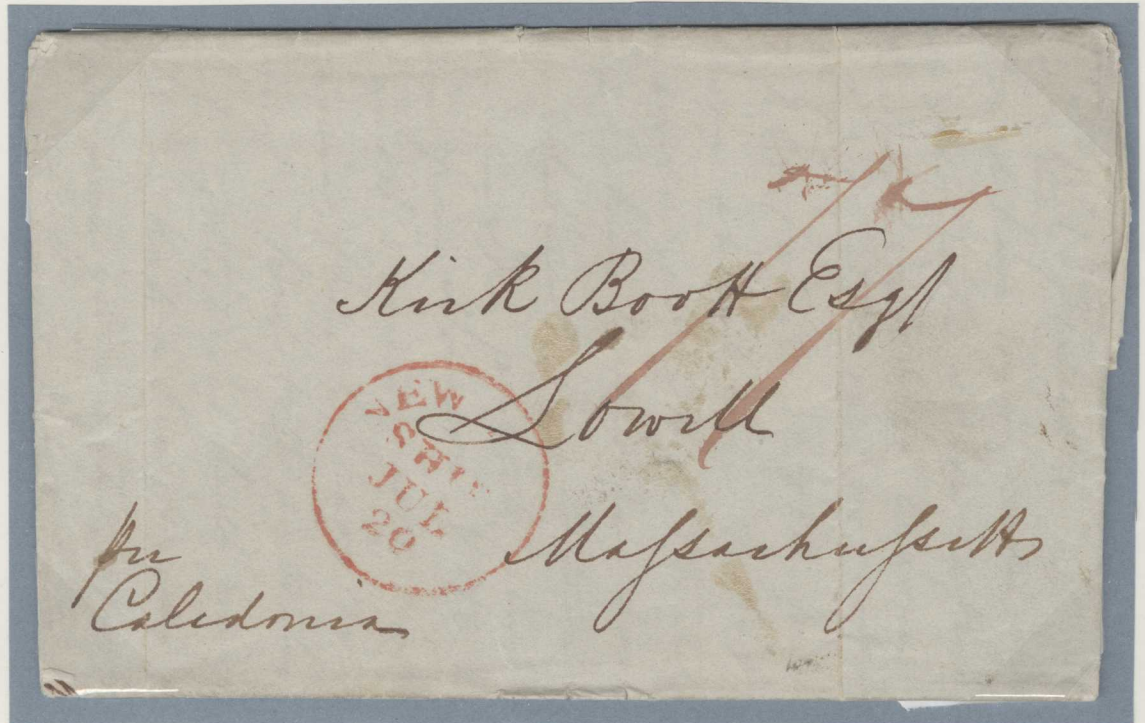 Kirk Boott Esqr
Lowell
Massachussetts
NEW
SHIP
JUL
20
per
Caledonia